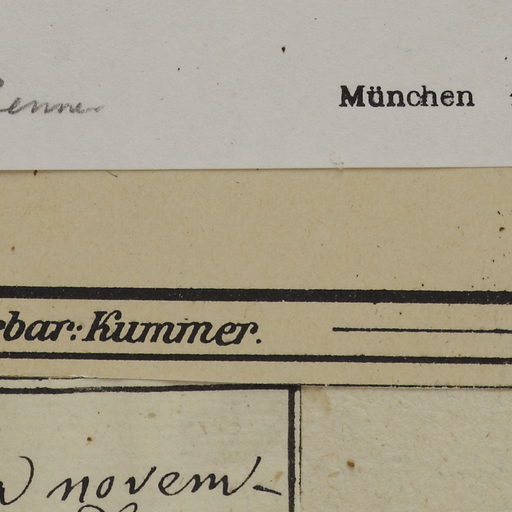 München
bar: Kummer.
novem-